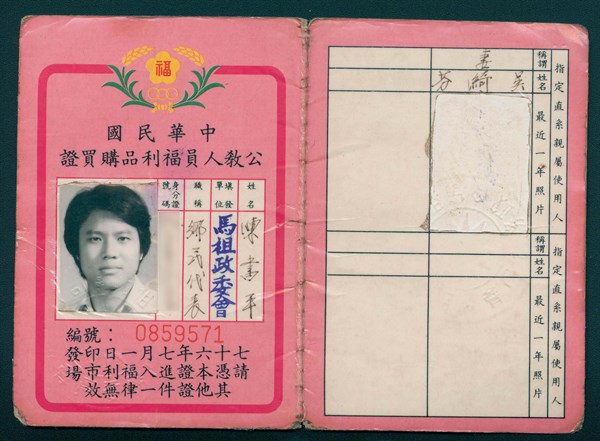 福
中華民國
公教人員福利品購買證
姓名
陳書平
填發單位
馬祖政委會
職稱
鄉民代表
身分證號碼
編號：0859571
七十六年七月一日印發
請憑本證進入福利市場
其他證件一律無效
指定直系親屬使用人
稱謂 妻
姓名 吳綺芬
最近一年照片
指定直系親屬使用人
稱謂
姓名
最近一年照片